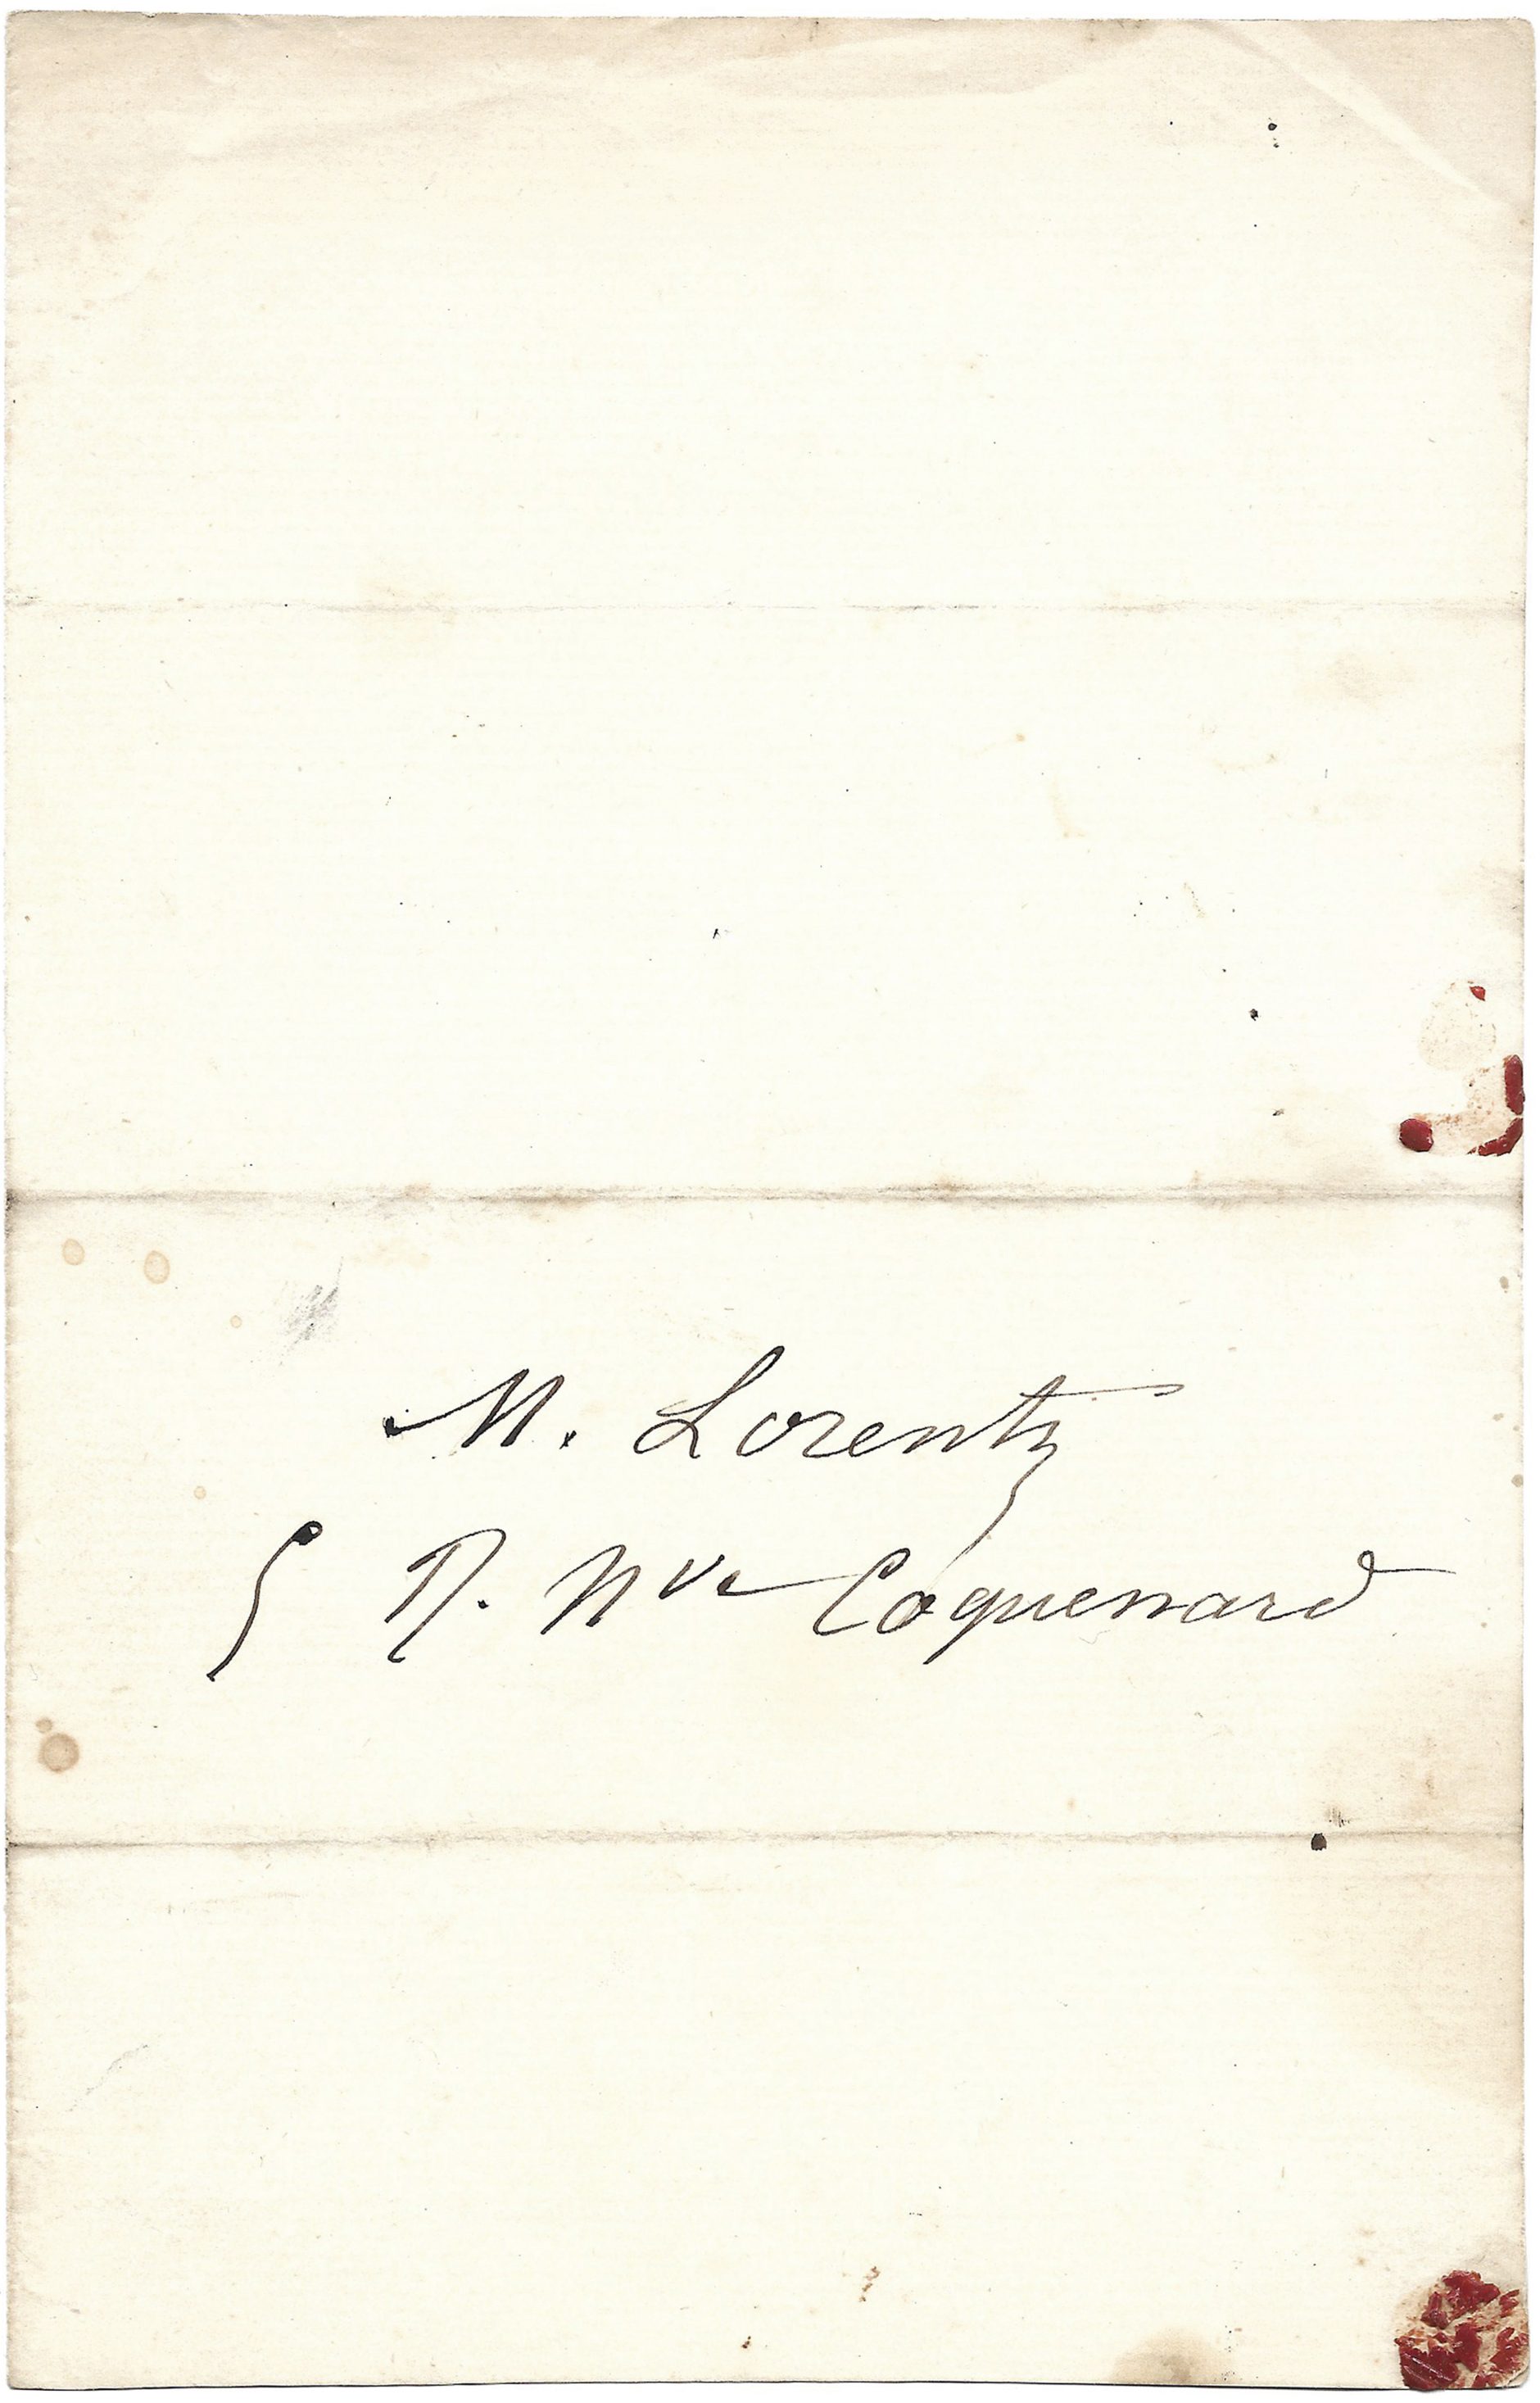 M. Lorentz
5 R. Nve Coquenard